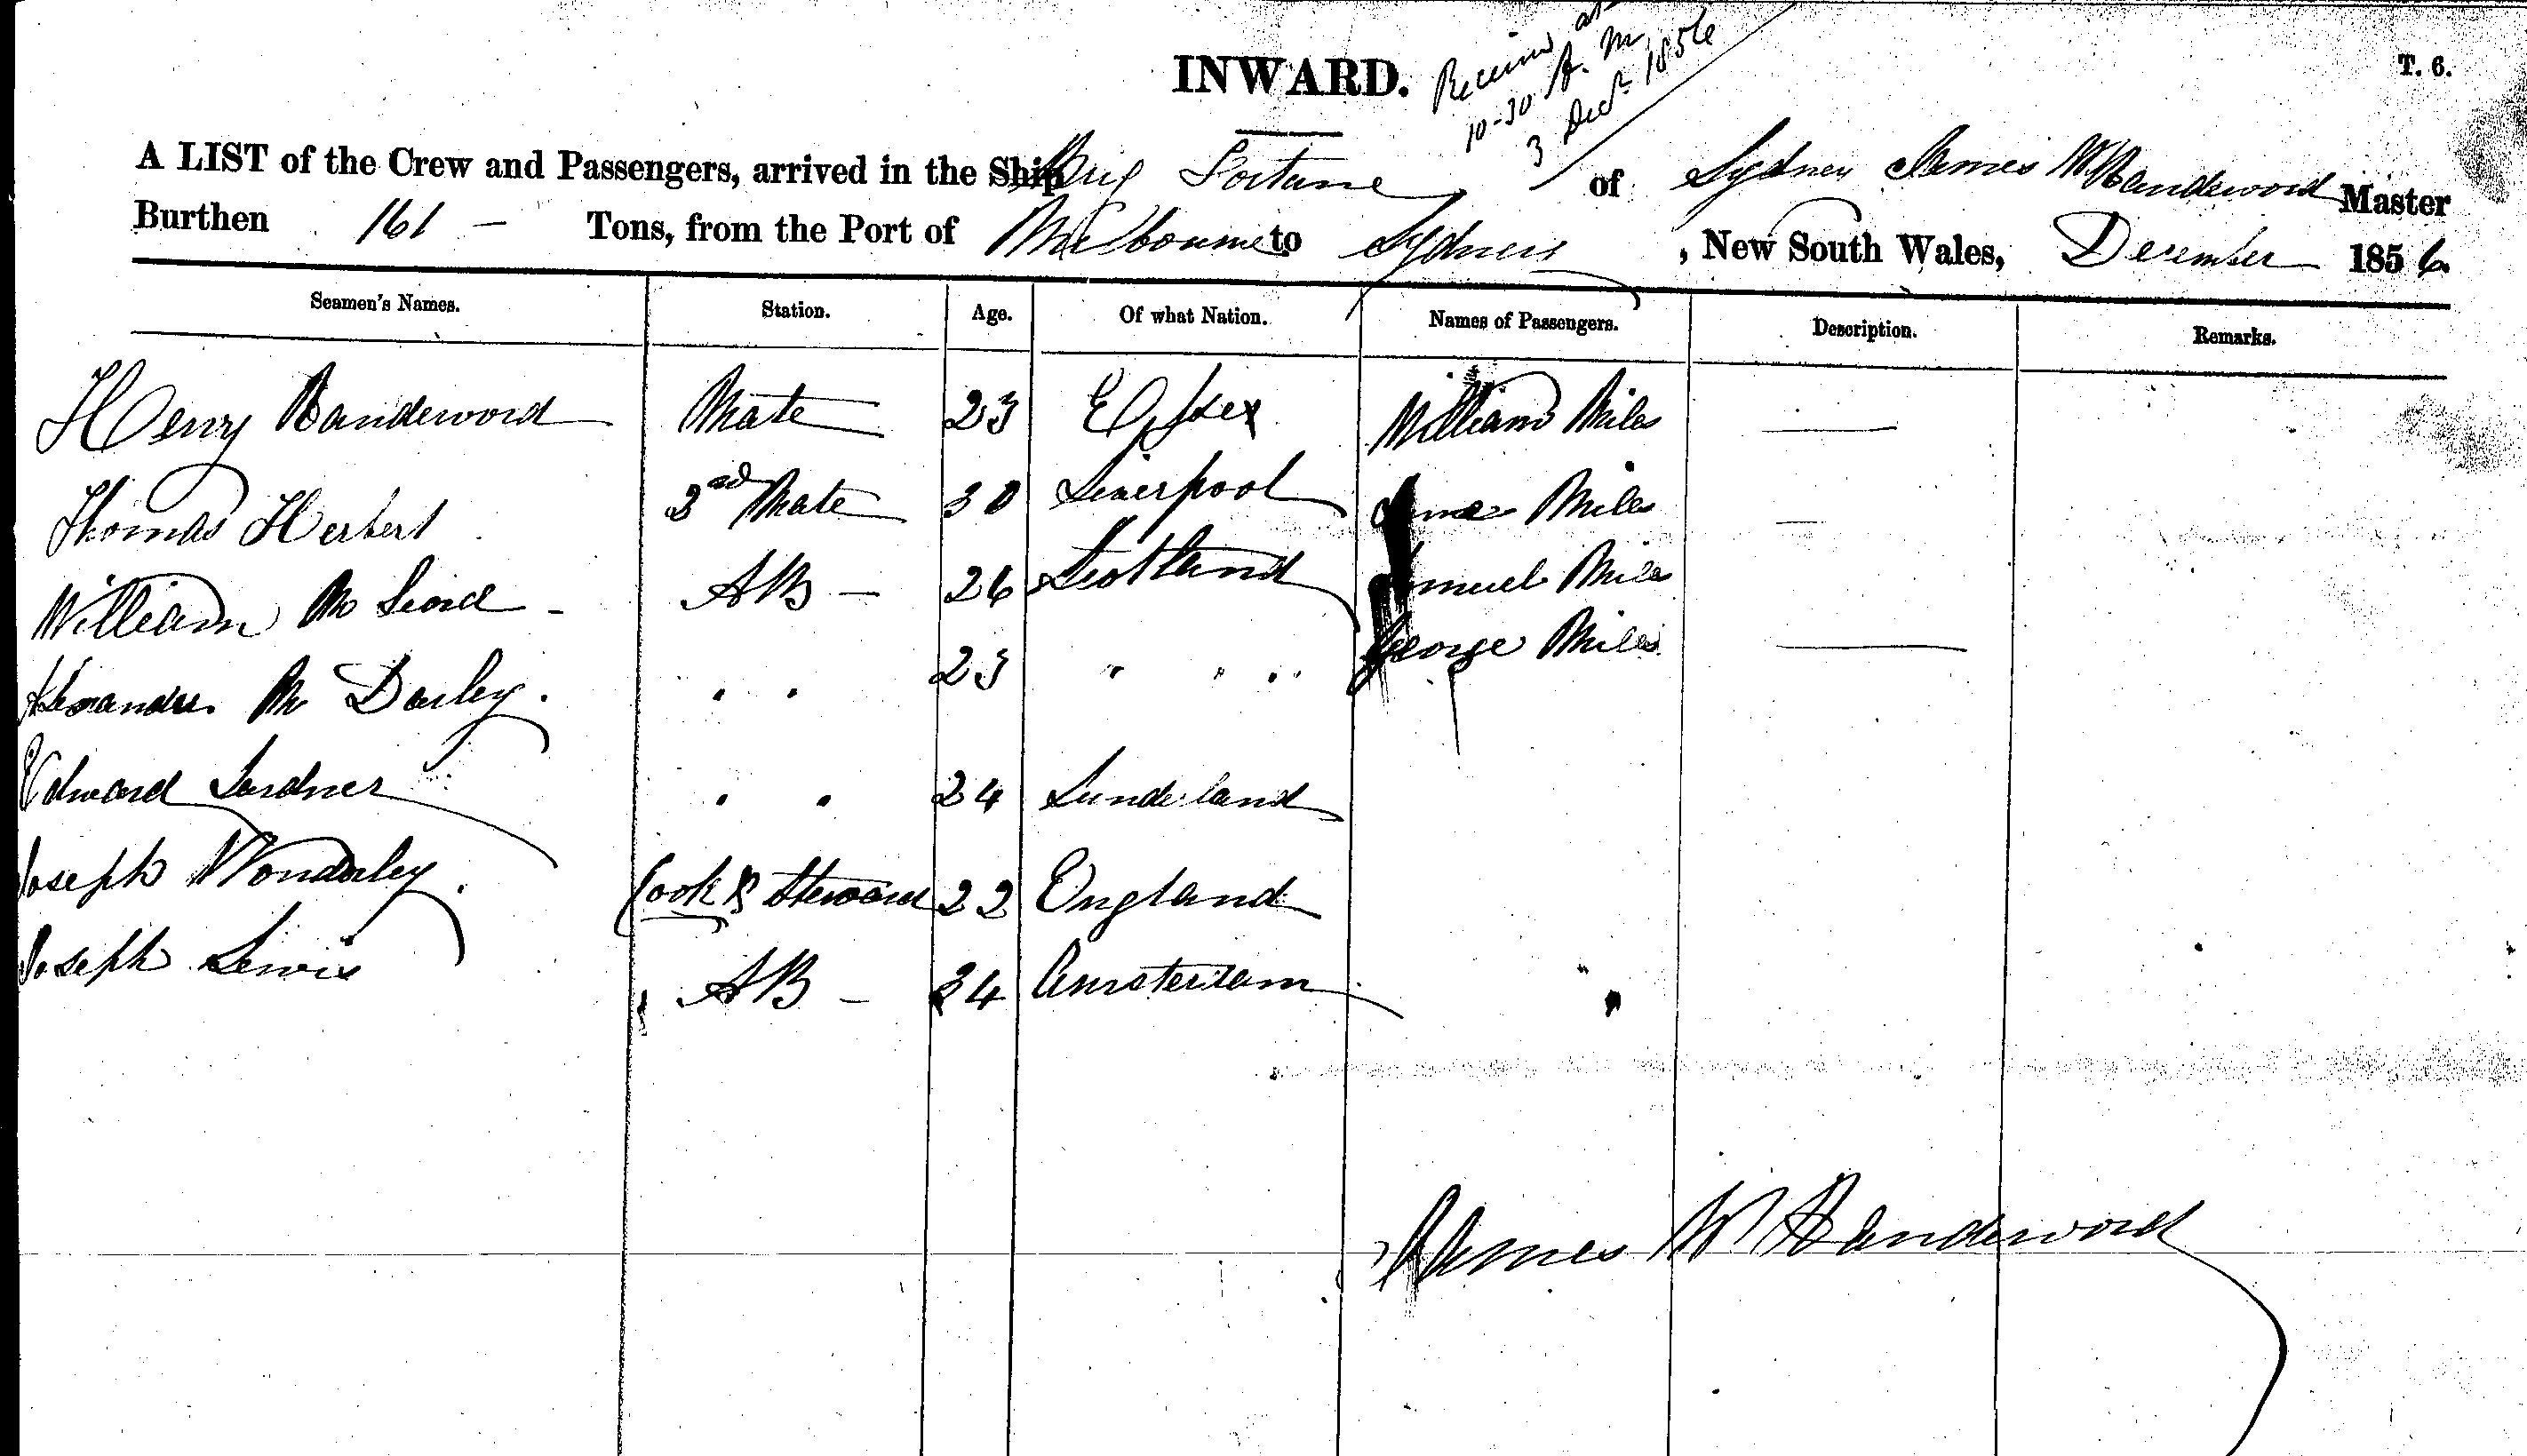 INWARD.
Received at
10-30 A. M.
3 Decr 1856
T. 6.
A LIST of the Crew and Passengers, arrived in the Ship Brig Fortune of Sydney James W Handeword Master
Burthen 161 - Tons, from the Port of Melbourne to Sydney, New South Wales, December 1856.
Seamen's Names. Station. Age. Of what Nation. Names of Passengers. Description. Remarks.
Henry Handeword Mate 23 Essex William Miles
Thomas Herbert 2nd Mate 30 Liverpool Miles
William Mc AB - 26 Scotland Samuel Miles
Alexander Mc Darley. " " 23 " " George Miles
Edward Gardner " " 24 Sunderland
Joseph Wonderley. Cook & Steward 22 England
Joseph Lewis AB - 24 Amsterdam
James W Handeword